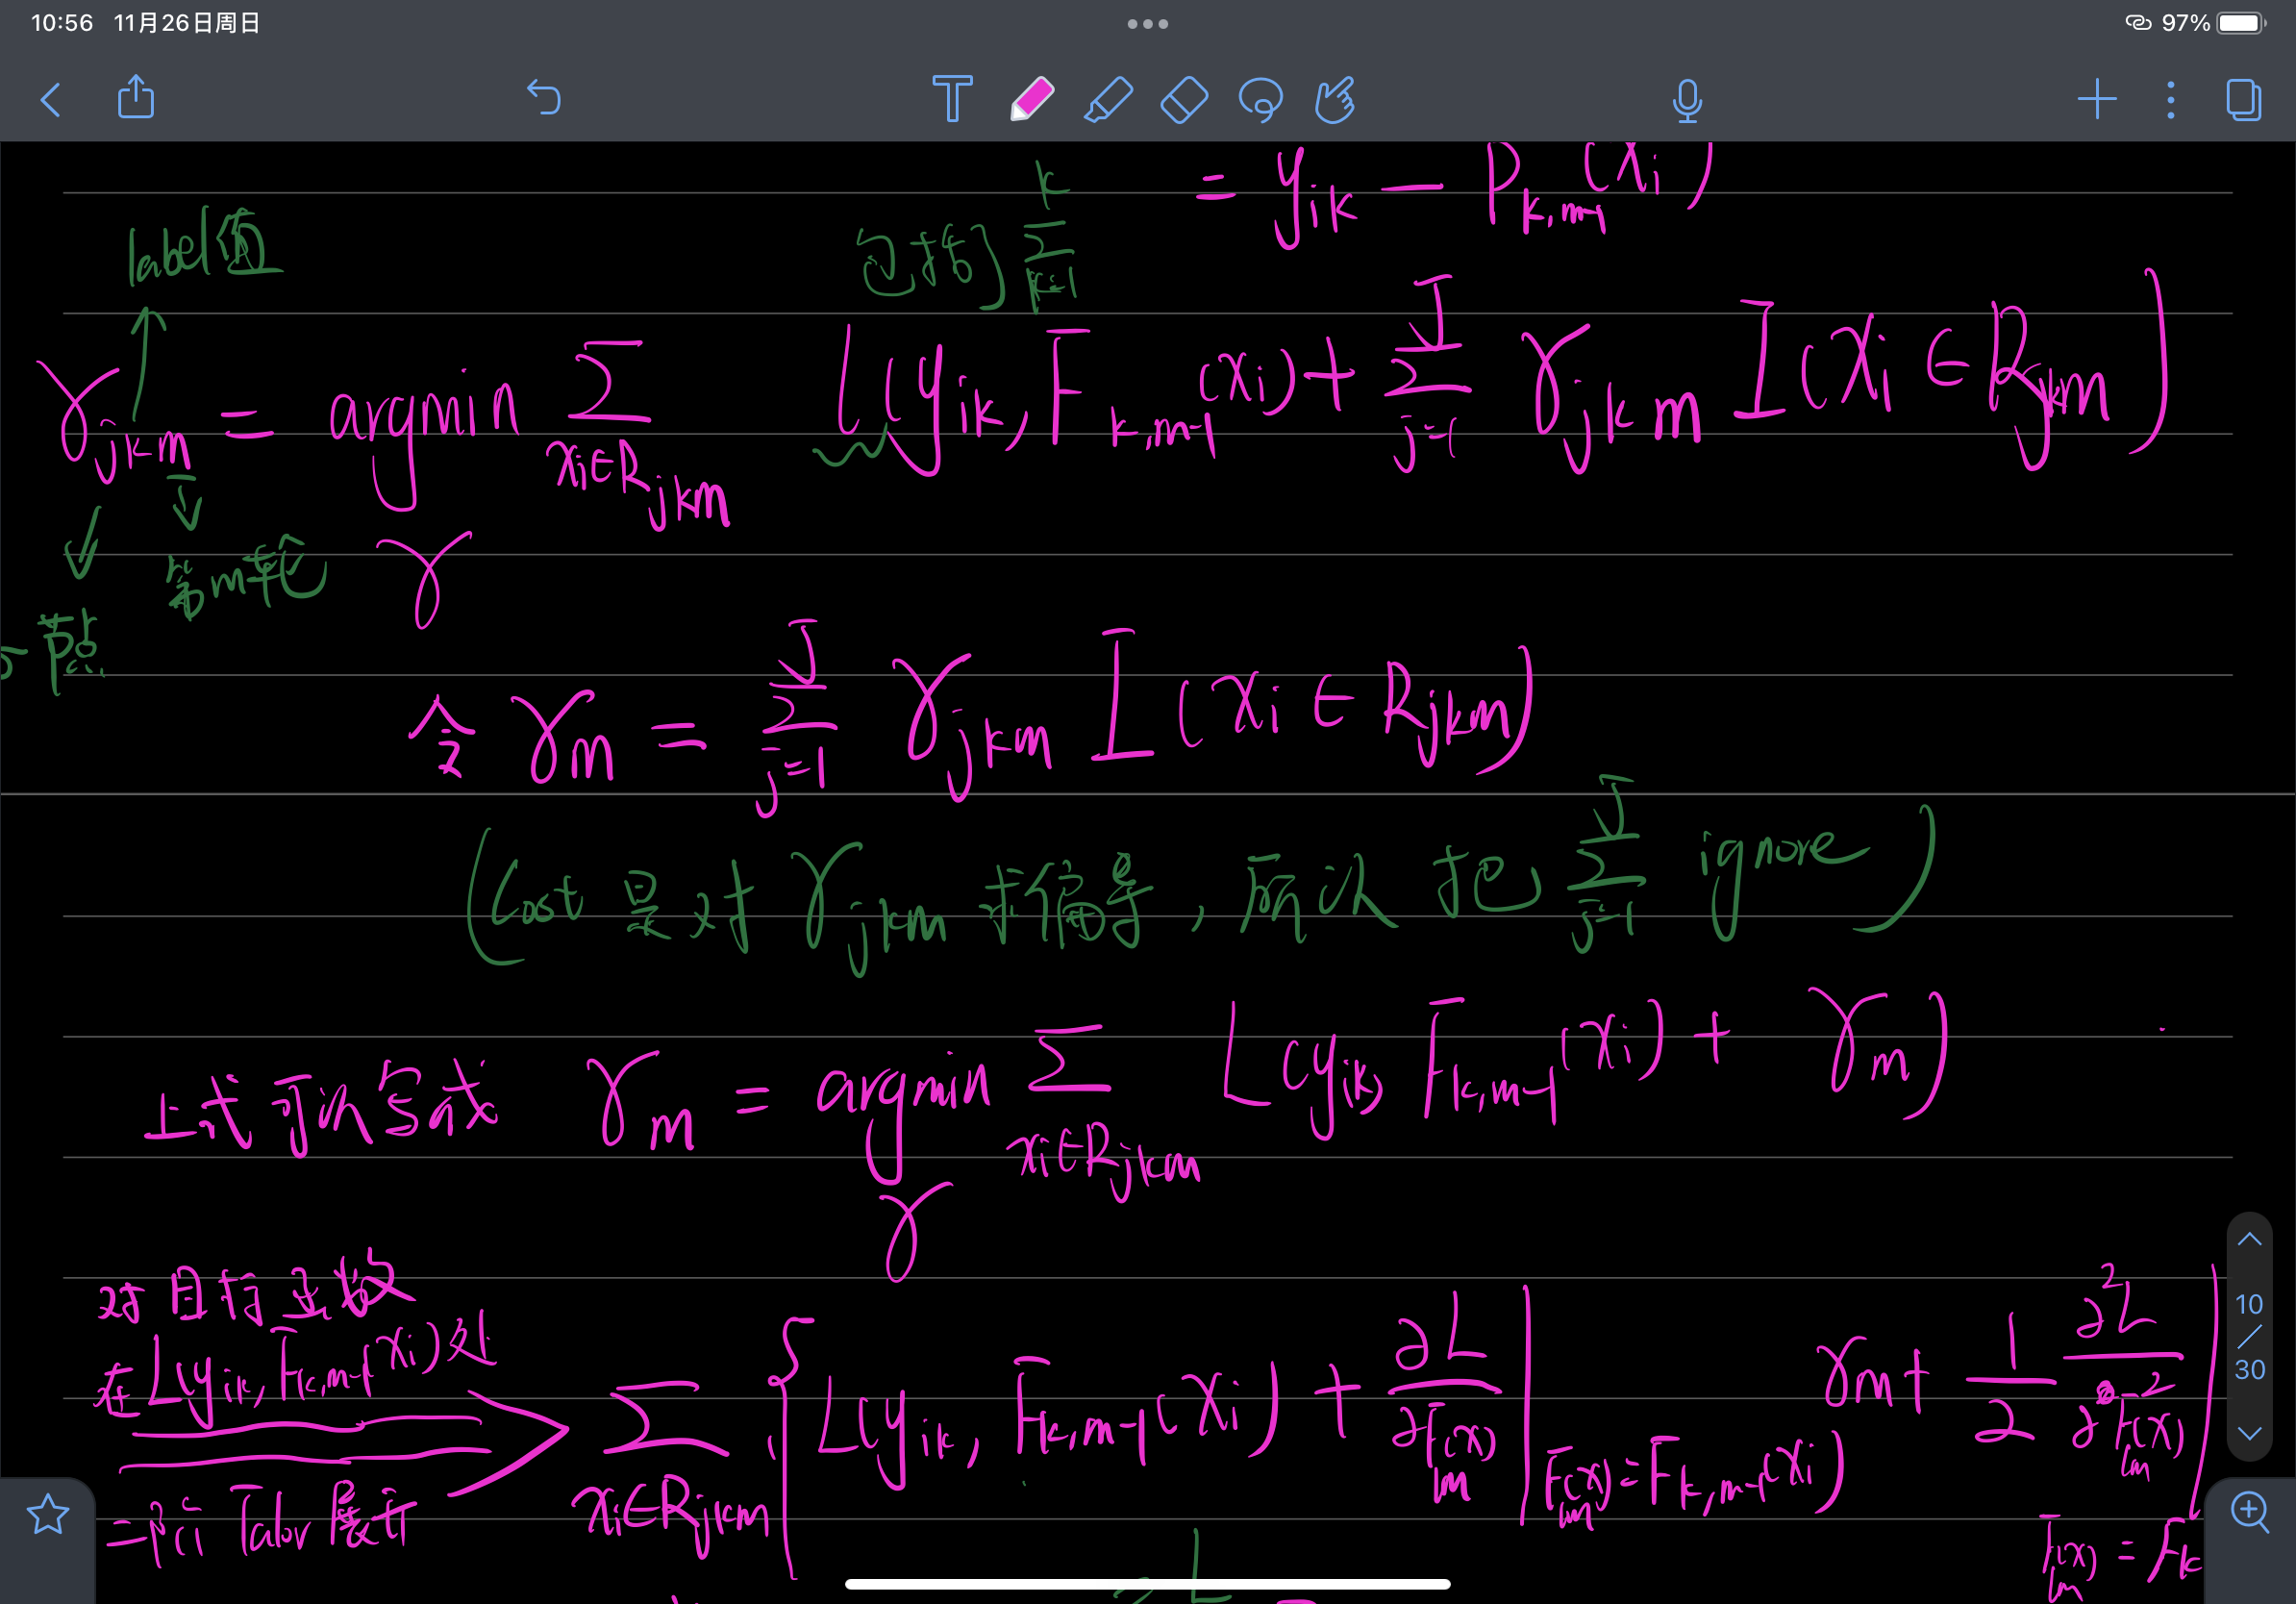 10:56 11月26日周日
97%
= y_{ik} - P_{k,m-1}(x_i)
label值
包括 \sum_{k=1}^{k}
γ_{jkm} = argmin_γ \sum_{x_i∈R_{jkm}} L(y_{ik}, F_{k,m-1}(x_i) + \sum_{j=1}^{J} γ_{jkm} I(x_i ∈ R_{jkm})
第m轮
节点
令 γ_m = \sum_{j=1}^{J} γ_{jkm} I(x_i ∈ R_{jkm})
(Cost 是对 γ_{jkm} 求偏导, 所以把 \sum_{j=1}^{J} ignore)
上式可以写成 γ_m = argmin_γ \sum_{x_i∈R_{jkm}} L(y_{ik}, F_{k,m-1}(x_i) + γ_m)
对目标函数
在 L(y_{ik}, F_{k,m-1}(x_i)处
二阶 Talor 展开
\sum_{x_i∈R_{jkm}} { L(y_{ik}, F_{k,m-1}(x_i) + \frac{∂L}{∂F_{km}(x)} | F_{km}(x) = F_{k,m-1}(x_i)) γ_m + \frac{1}{2} \frac{∂^2L}{∂^2F_{km}(x)} |
F_{km}(x) = F_k
10
/
30